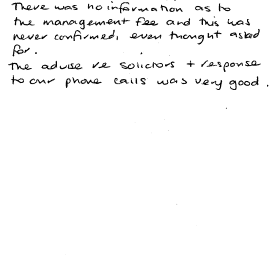 There was no information as to
the management fee and this was
never confirmed, even thought asked
for.
The advise re solicitors + response
to our phone calls was very good.